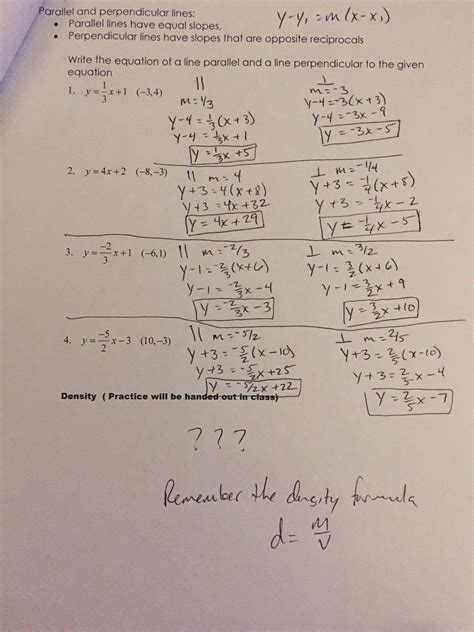 Parallel and perpendicular lines:
y-y₁ = m(x-x₁)
• Parallel lines have equal slopes.
• Perpendicular lines have slopes that are opposite reciprocals
Write the equation of a line parallel and a line perpendicular to the given
equation
1. y = 1/3 x + 1 (-3,4)
||
m = 1/3
y-4 = 1/3 (x+3)
y-4 = 1/3 x + 1
y = 1/3 x + 5
⊥
m = -3
y-4 = -3(x+3)
y-4 = -3x - 9
y = -3x - 5
2. y = 4x + 2 (-8,-3)
|| m = 4
y+3 = 4(x+8)
y+3 = 4x + 32
y = 4x + 29
⊥ m = -1/4
y+3 = -1/4 (x+8)
y+3 = -1/4 x - 2
y = -1/4 x - 5
3. y = -2/3 x + 1 (-6,1)
|| m = -2/3
y-1 = -2/3 (x+6)
y-1 = -2/3 x - 4
y = -2/3 x - 3
⊥ m = 3/2
y-1 = 3/2 (x+6)
y-1 = 3/2 x + 9
y = 3/2 x + 10
4. y = -5/2 x - 3 (10,-3)
|| m = -5/2
y+3 = -5/2 (x-10)
y+3 = -5/2 x + 25
y = -5/2 x + 22
⊥ m = 2/5
y+3 = 2/5 (x-10)
y+3 = 2/5 x - 4
y = 2/5 x - 7
Density ( Practice will be handed out in class)
? ? ?
Remember the density formula
d = m/v